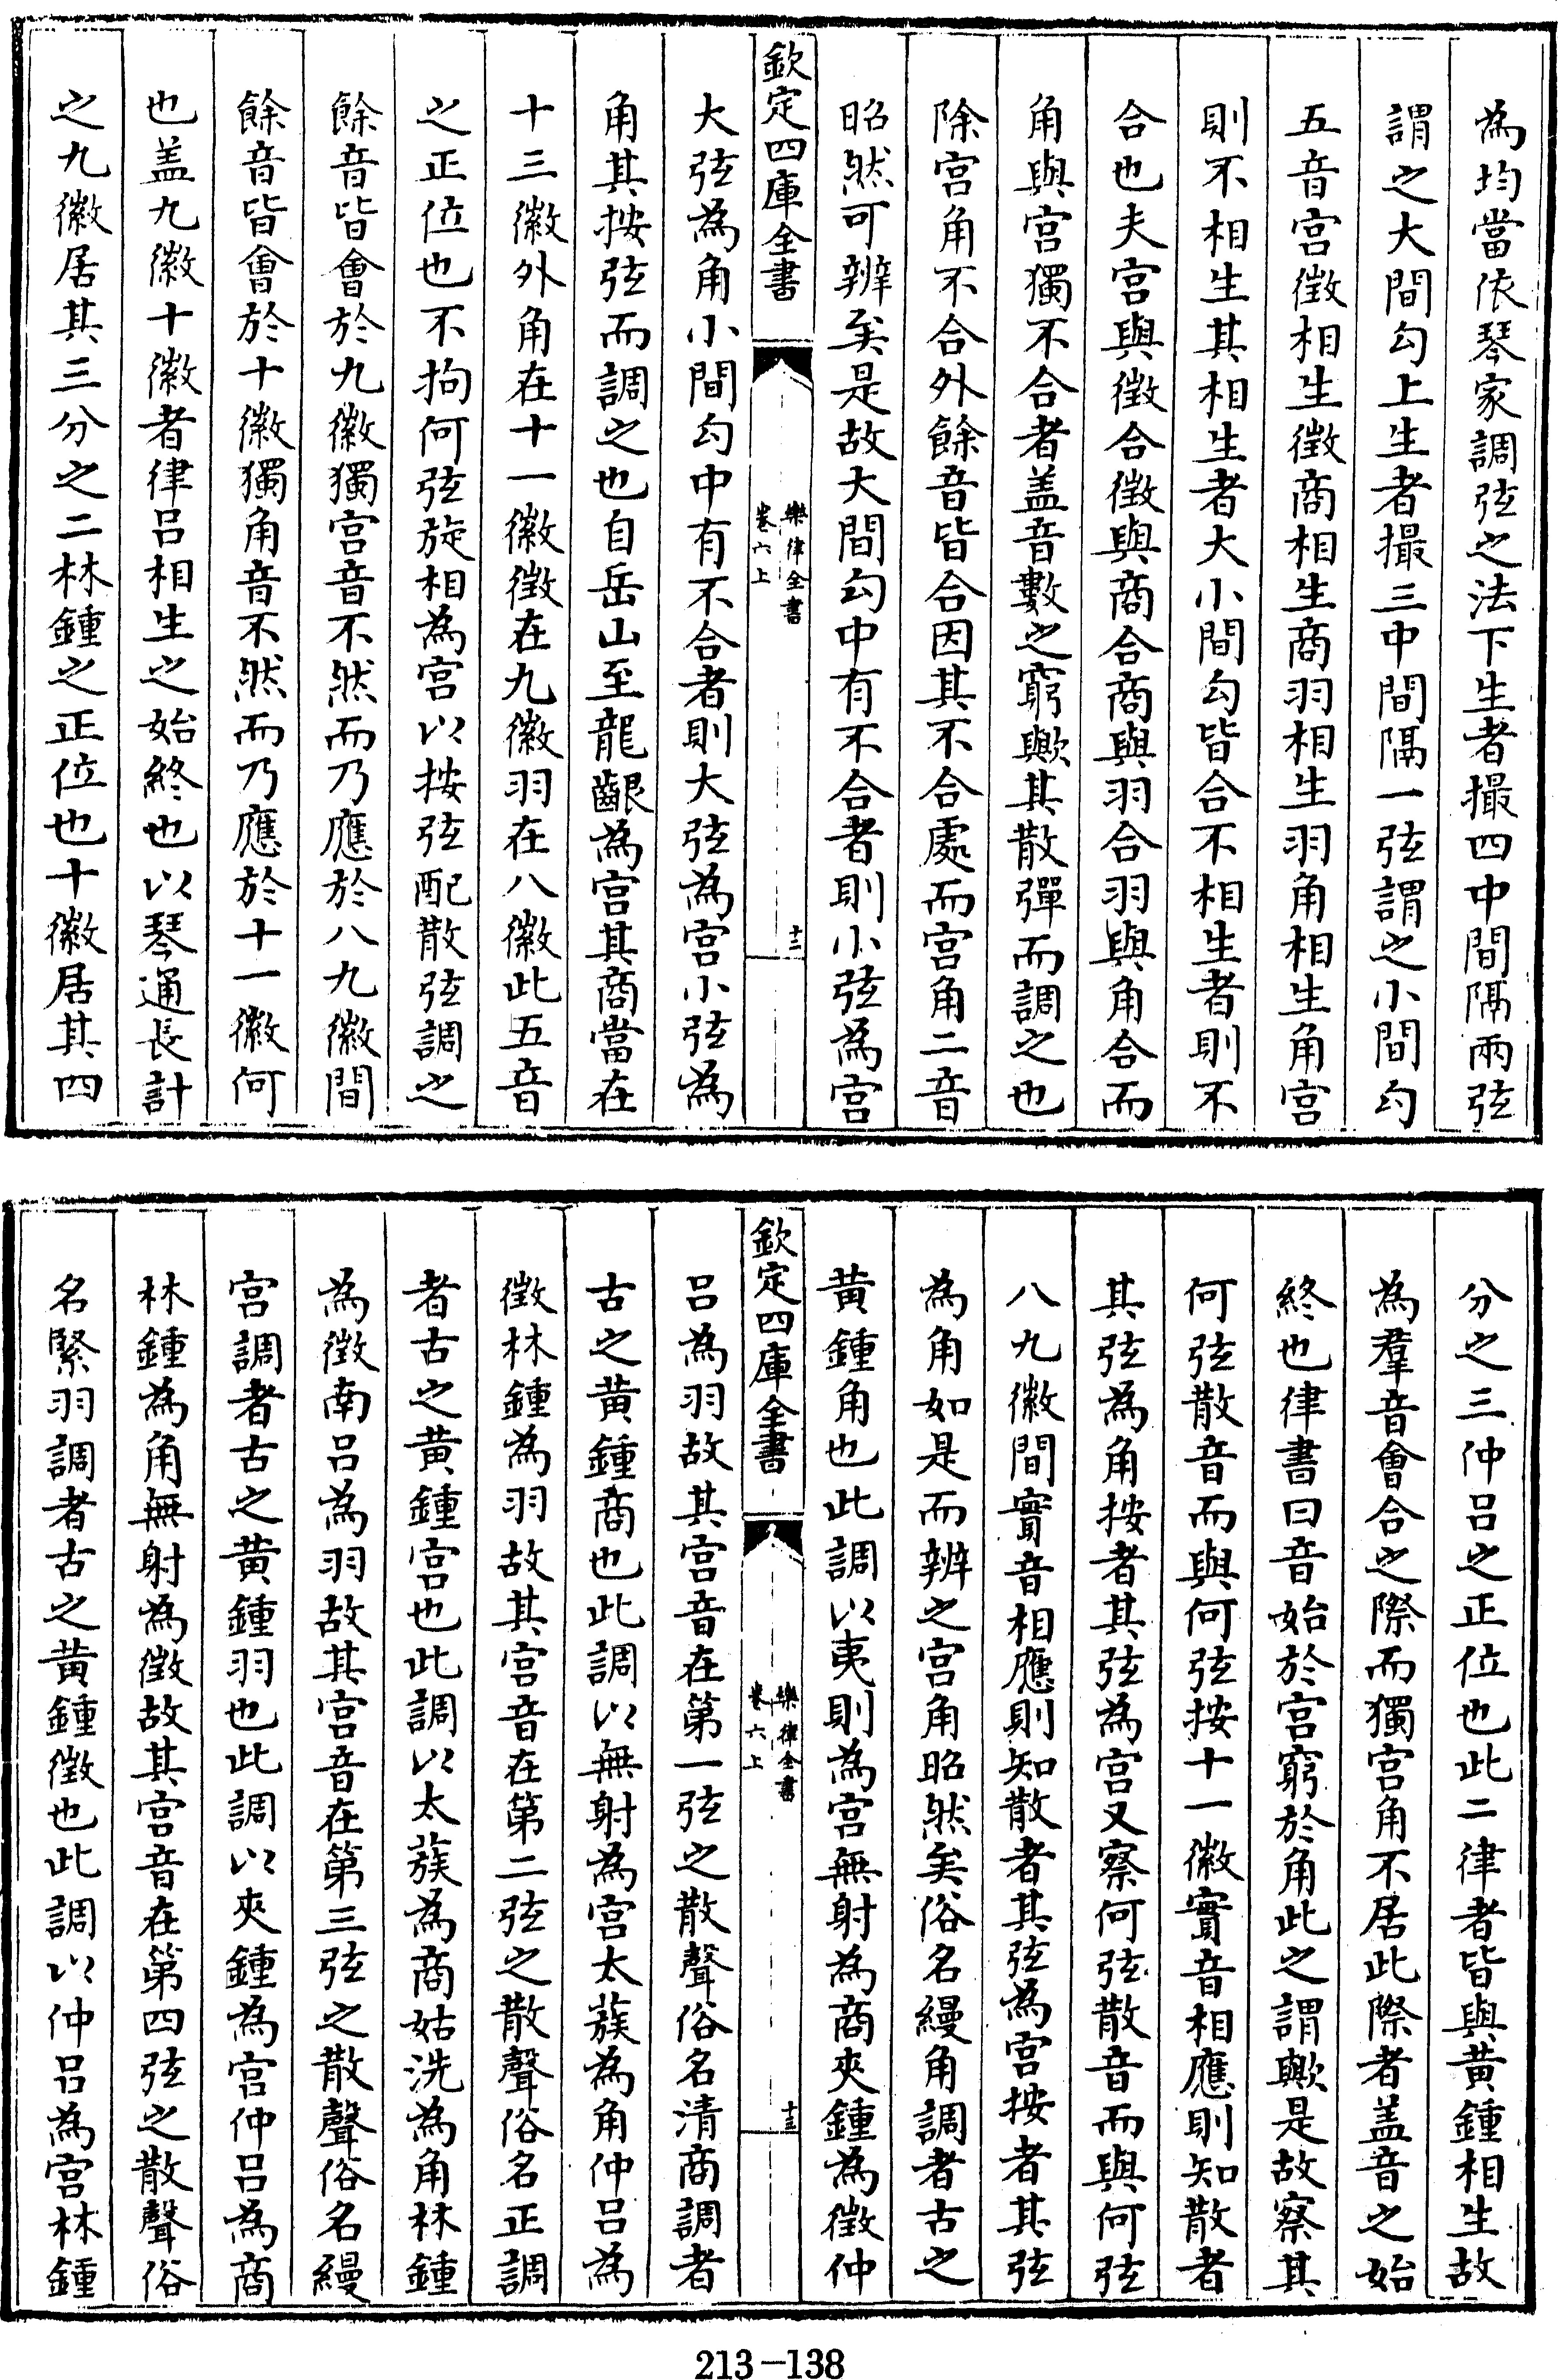 為均當依琴家調弦之法下生者撮四中間隔兩弦
謂之大間勾上生者撮三中間隔一弦謂之小間勾
五音宫徵相生徵商相生商羽相生羽角相生角宫
則不相生其相生者大小間勾皆合不相生者則不
合也夫宫與徵合徵與商合商與羽合羽與角合而
角與宫獨不合者盖音數之窮歟其散彈而調之也
除宫角不合外餘音皆合因其不合處而宫角二音
昭然可辨矣是故大間勾中有不合者則小弦為宫
欽定四庫全書
樂律全書
卷六上
十二
大弦為角小間勾中有不合者則大弦為宫小弦為
角其按弦而調之也自岳山至龍齦為宫其商當在
十三徽外角在十一徽徵在九徽羽在八徽此五音
之正位也不拘何弦旋相為宫以按弦配散弦調之
餘音皆會於九徽獨宫音不然而乃應於八九徽間
餘音皆會於十徽獨角音不然而乃應於十一徽何
也盖九徽十徽者律吕相生之始終也以琴通長計
之九徽居其三分之二林鍾之正位也十徽居其四
分之三仲吕之正位也此二律者皆與黄鍾相生故
為羣音會合之際而獨宫角不居此際者盖音之始
終也律書曰音始於宫窮於角此之謂歟是故察其
何弦散音而與何弦按十一徽實音相應則知散者
其弦為角按者其弦為宫又察何弦散音而與何弦
八九徽間實音相應則知散者其弦為宫按者其弦
為角如是而辨之宫角昭然矣俗名縵角調者古之
黄鍾角也此調以夷則為宫無射為商夾鍾為徵仲
欽定四庫全書
樂律全書
卷六上
十三
吕為羽故其宫音在第一弦之散聲俗名清商調者
古之黄鍾商也此調以無射為宫太蔟為角仲吕為
徵林鍾為羽故其宫音在第二弦之散聲俗名正調
者古之黄鍾宫也此調以太蔟為商姑洗為角林鍾
為徵南吕為羽故其宫音在第三弦之散聲俗名縵
宫調者古之黄鍾羽也此調以夾鍾為宫仲吕為商
林鍾為角無射為徵故其宫音在第四弦之散聲俗
名緊羽調者古之黄鍾徵也此調以仲吕為宫林鍾
213-138